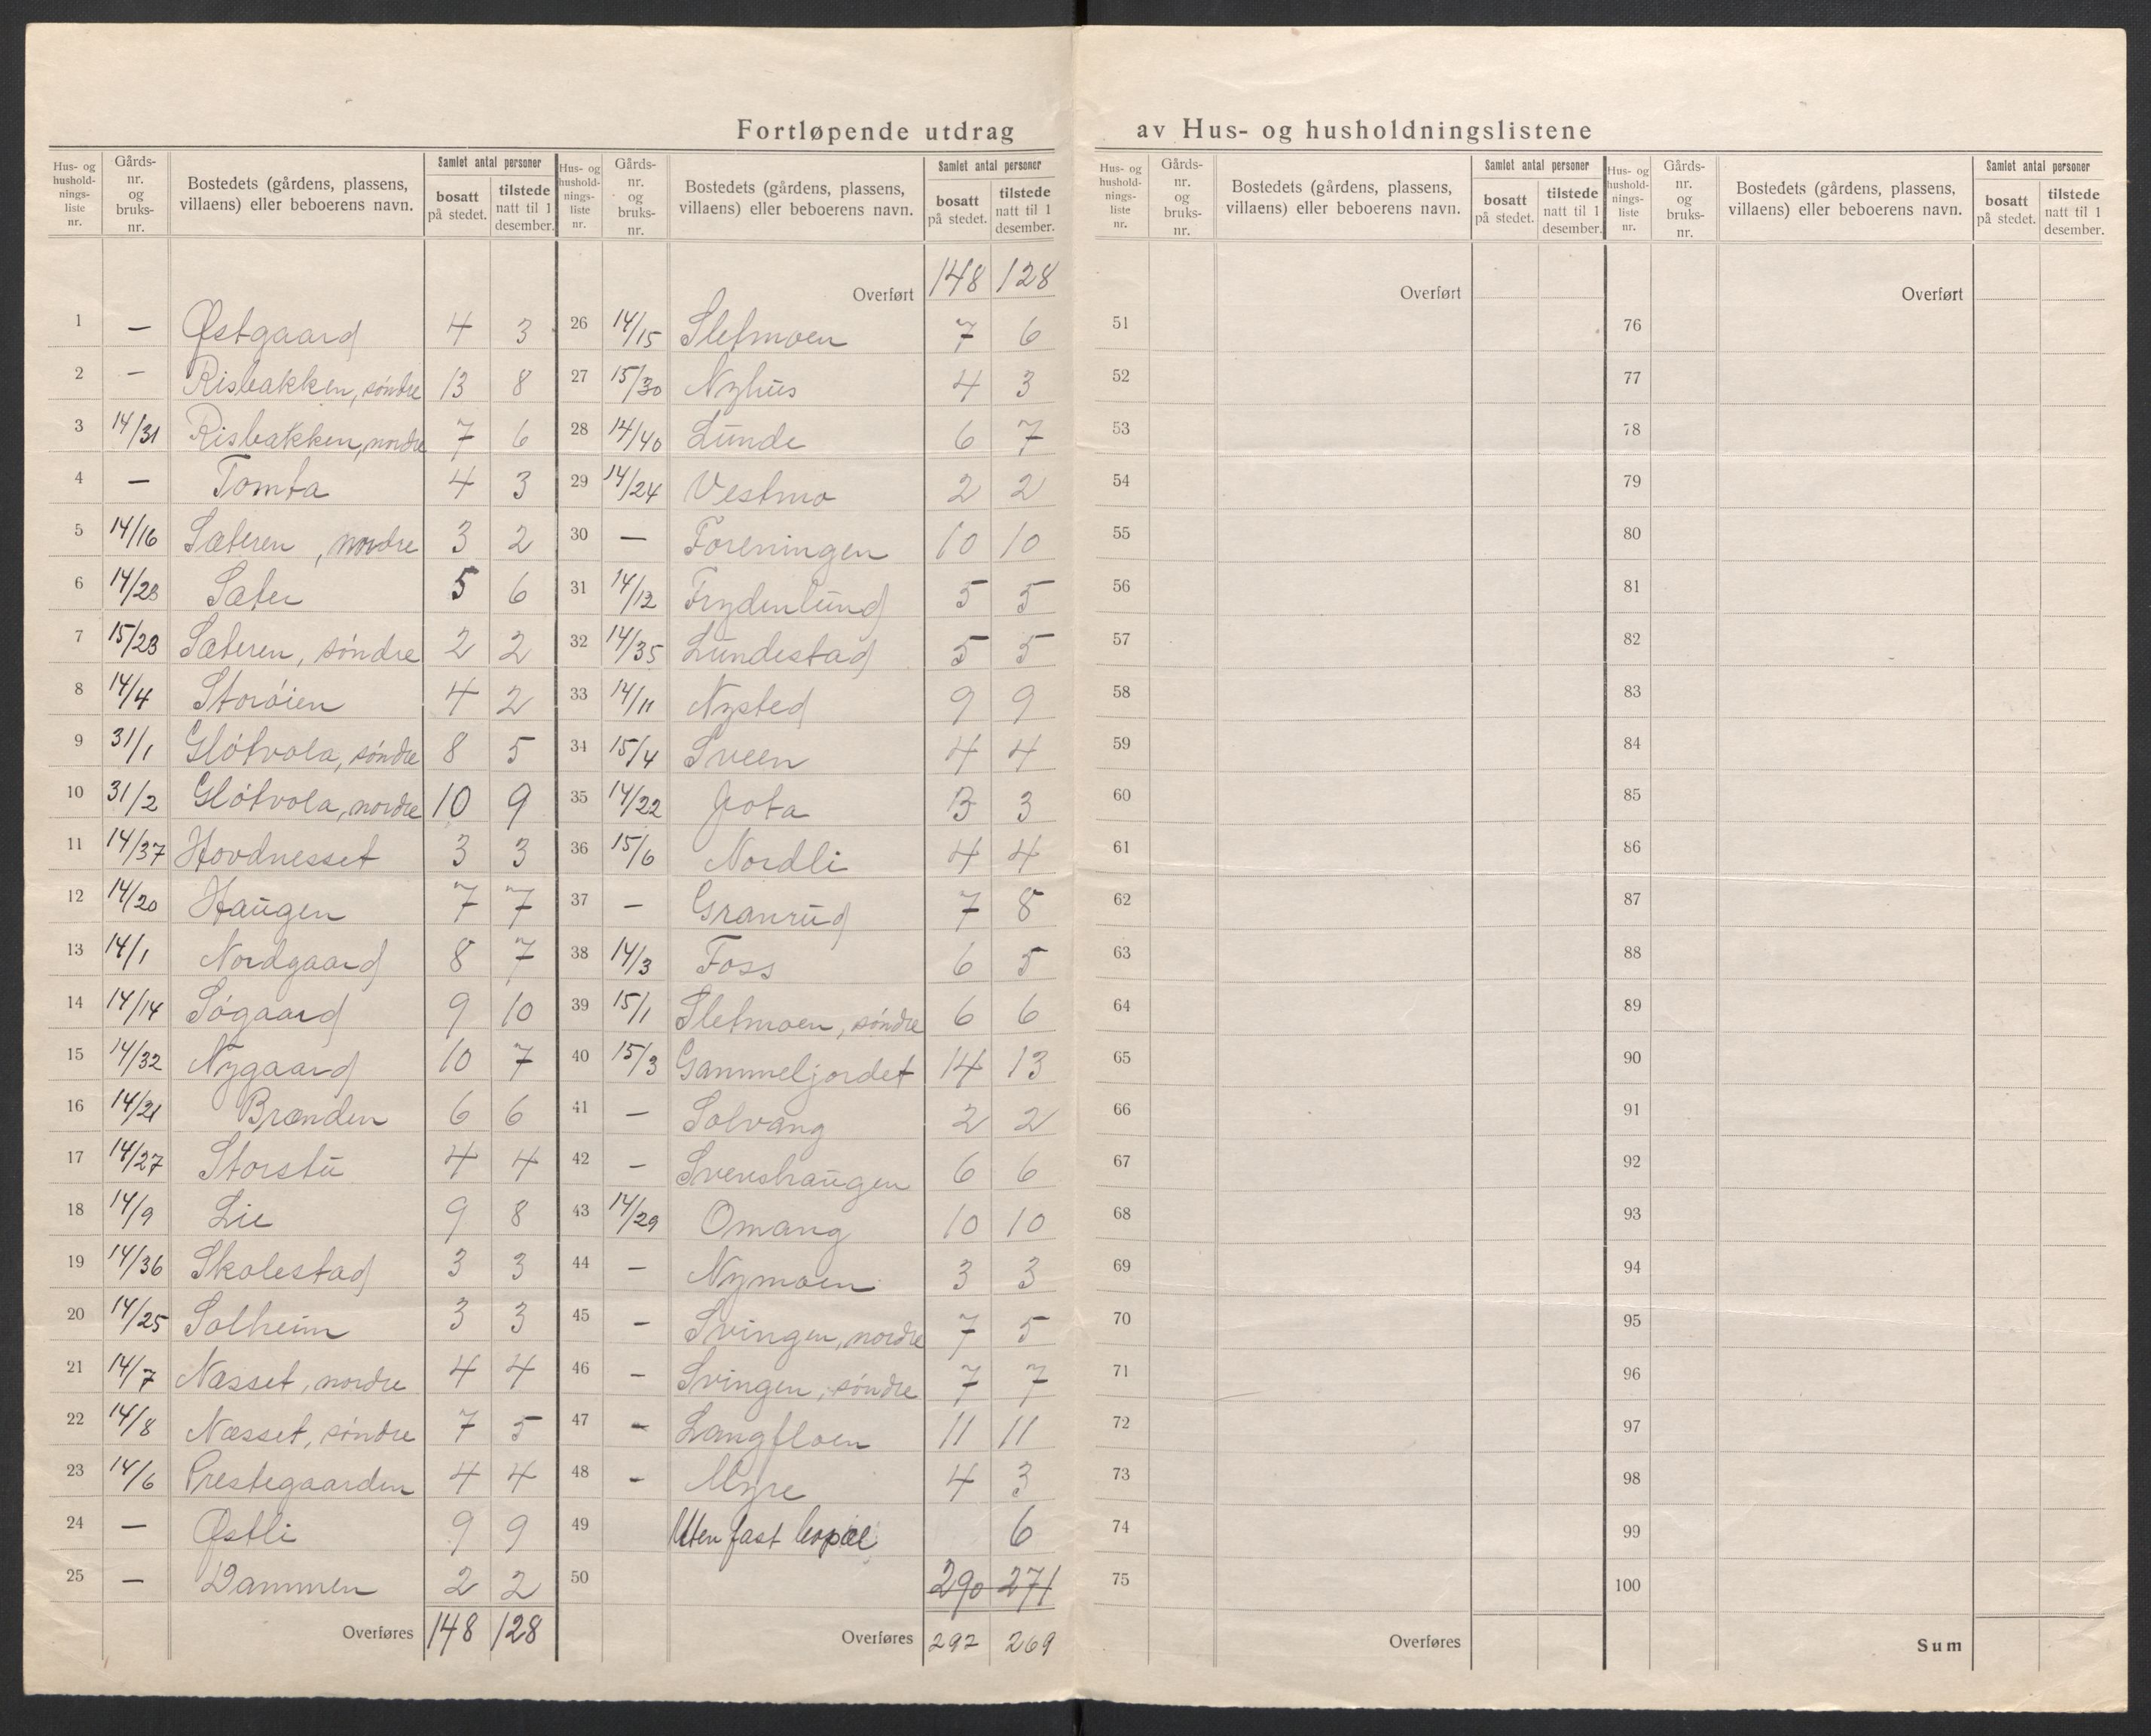 Fortløpende utdrag av Hus- og husholdningslistene
Hus- og hushold-nings-liste nr. | Gårds-nr. og bruks-nr. | Bostedets (gårdens, plassens, villaens) eller beboerens navn. | Samlet antal personer bosatt på stedet. | tilstede natt til 1 desember.
1 — Østgaard 4 3
2 — Risbakken, søndre 13 8
3 14/31 Risbakken, nordre 7 6
4 — Tomta 4 3
5 14/16 Sæteren, nordre 3 2
6 14/28 Sæter 5 6
7 15/28 Sæteren, søndre 2 2
8 14/4 Storøien 4 2
9 31/1 Gløtvola, søndre 8 5
10 31/2 Gløtvola, nordre 10 9
11 14/37 Hovdnesset 3 3
12 14/20 Haugen 7 7
13 14/1 Nordgaard 8 7
14 14/14 Søgaard 9 10
15 14/32 Nygaard 10 7
16 14/21 Brænden 6 6
17 14/27 Storstu 4 4
18 14/9 Lie 9 8
19 14/36 Skolestad 3 3
20 14/25 Solheim 3 3
21 14/7 Næsset, nordre 4 4
22 14/8 Næsset, søndre 7 5
23 14/6 Prestegaarden 4 4
24 — Østli 9 9
25 — Dammen 2 2
Overføres 148 128
Hus- og hushold-nings-liste nr. | Gårds-nr. og bruks-nr. | Bostedets (gårdens, plassens, villaens) eller beboerens navn. | Samlet antal personer bosatt på stedet. | tilstede natt til 1 desember.
Overført 148 128
26 14/15 Sletmoen 7 6
27 15/30 Nyhus 4 3
28 14/40 Lunde 6 7
29 14/24 Vestmo 2 2
30 — Foreningen 10 10
31 14/12 Frydenlund 5 5
32 14/35 Lundestad 5 5
33 14/11 Nysted 9 9
34 15/4 Sveen 4 4
35 14/22 Jota 3 3
36 15/6 Nordli 4 4
37 — Granrud 7 8
38 14/3 Foss 6 5
39 15/1 Sletmoen, søndre 6 6
40 15/3 Gammeljordet 14 13
41 — Solvang 2 2
42 — Svenshaugen 6 6
43 14/29 Omang 10 10
44 — Nymoen 3 3
45 — Svingen, nordre 7 5
46 — Svingen, søndre 7 7
47 — Langfloen 11 11
48 — Myre 4 3
49 Uten fast bopæl 6
50 290 271
Overføres 292 269
Hus- og hushold-nings-liste nr. | Gårds-nr. og bruks-nr. | Bostedets (gårdens, plassens, villaens) eller beboerens navn. | Samlet antal personer bosatt på stedet. | tilstede natt til 1 desember.
Overført
51
52
53
54
55
56
57
58
59
60
61
62
63
64
65
66
67
68
69
70
71
72
73
74
75
Overføres
Hus- og hushold-nings-liste nr. | Gårds-nr. og bruks-nr. | Bostedets (gårdens, plassens, villaens) eller beboerens navn. | Samlet antal personer bosatt på stedet. | tilstede natt til 1 desember.
Overført
76
77
78
79
80
81
82
83
84
85
86
87
88
89
90
91
92
93
94
95
96
97
98
99
100
Sum